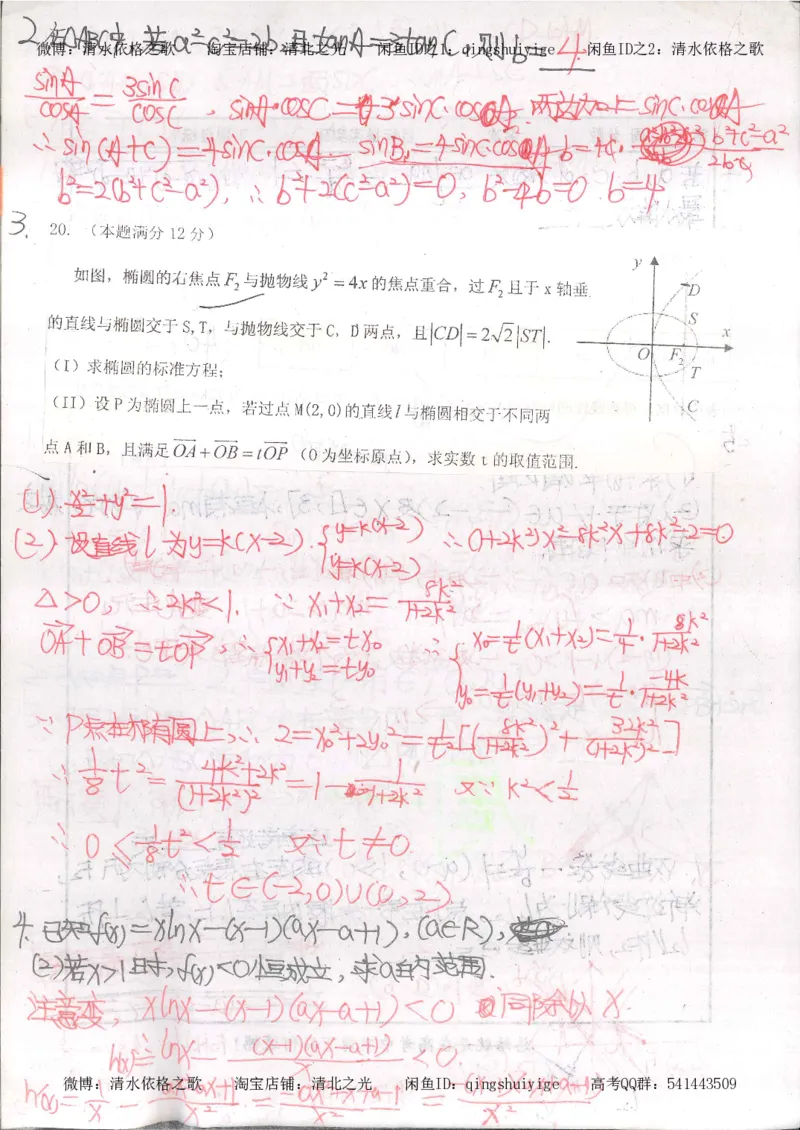 2.在△ABC中,若a²-c²=2b,且tanA=3tanC,则b= 4.
微博:清水依格之歌 淘宝店铺:清北之光 闲鱼ID之1:qingshuiyige 闲鱼ID之2:清水依格之歌
sinA/cosA = 3sinC/cosC, sinA·cosC=3sinC·cosA, 两边加上 sinC·cosA
∴ sin(A+C)=4sinC·cosA sinB=4sinC·cosA b=4c· (b²+c²-a²)/2bc
b²=2(b²+c²-a²), ∴ b²+2(c²-a²)=0, b²-4b=0 b=4
3. 20. (本题满分12分)
如图,椭圆的右焦点F₂与抛物线y²=4x的焦点重合,过F₂且于x轴垂
的直线与椭圆交于S,T,与抛物线交于C,D两点,且|CD|=2√2|ST|.
(I)求椭圆的标准方程;
(II)设P为椭圆上一点,若过点M(2,0)的直线l与椭圆相交于不同两
点A和B,且满足OA+OB=tOP(O为坐标原点),求实数t的取值范围.
y
D
S
x
O F₂
T
C
(1) x²/2+y²=1.
(2) 设直线l为y=k(x-2) {y=k(x-2) ∴(1+2k²)x²-8k²x+8k²-2=0
y=k(x-2)
△>0, ∴2k²<1. ∵ x₁+x₂= 8k²/1+2k²
OA+OB=tOP, ∴{x₁+x₂=tx₀ ∴ {x₀=1/t(x₁+x₂)=1/t·8k²/1+2k²
y₁+y₂=ty₀ y₀=1/t(y₁+y₂)=1/t·-4k/1+2k²
∵P点在椭圆上, ∴ 2=x₀²+2y₀²=1/t²[(8k²/1+2k²)²+32k²/(1+2k²)²]
∴ 1/8t²=4k⁴+2k²/(1+2k²)²=1-1/1+2k² 又∵ k²<1/2
∴ 0≤1/8t²<1/2 又∵t≠0
∴t∈(-2,0)∪(0,2)
4.已知f(x)=xlnx-(x-1)(ax-a+1),(a∈R),
(2)若x>1时,f(x)<0恒成立,求a的范围.
注意变, xlnx-(x-1)(ax-a+1)<0 同除以x.
h(x)=lnx-(x-1)(ax-a+1)/x<0
微博:清水依格之歌 淘宝店铺:清北之光 闲鱼ID:qingshuiyige 高考QQ群:541443509